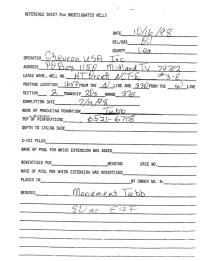 REFERENCE SHEET FOR UNDESIGNATED WELLS
DATE 10/16/98
OIL/GAS Oil
COUNTY Lea
OPERATOR Chevron USA Inc
ADDRESS PO Box 1150 Midland TX 79702
LEASE NAME, WELL NO. HT Orcutt NCT-E #3-E
FOOTAGE LOCATION 1650 FROM THE N LINE AND 330 FROM THE W LINE
SECTION 2 TOWNSHIP 20s RANGE 37e
COMPLETION DATE 7/11/98
NAME OF PRODUCING FORMATION Tubb
TOP OF PERFORATIONS 6521-6778
DEPTH TO CASING SHOE
C-123 FILED
NAME OF POOL FOR WHICH EXTENSION WAS ASKED
ADVERTISED FOR HEARING CASE NO.
NAME OF POOL FOR WHICH EXTENSION WAS ADVERTISED
PLACED IN BY ORDER NO. R-
REMARKS Monument Tubb